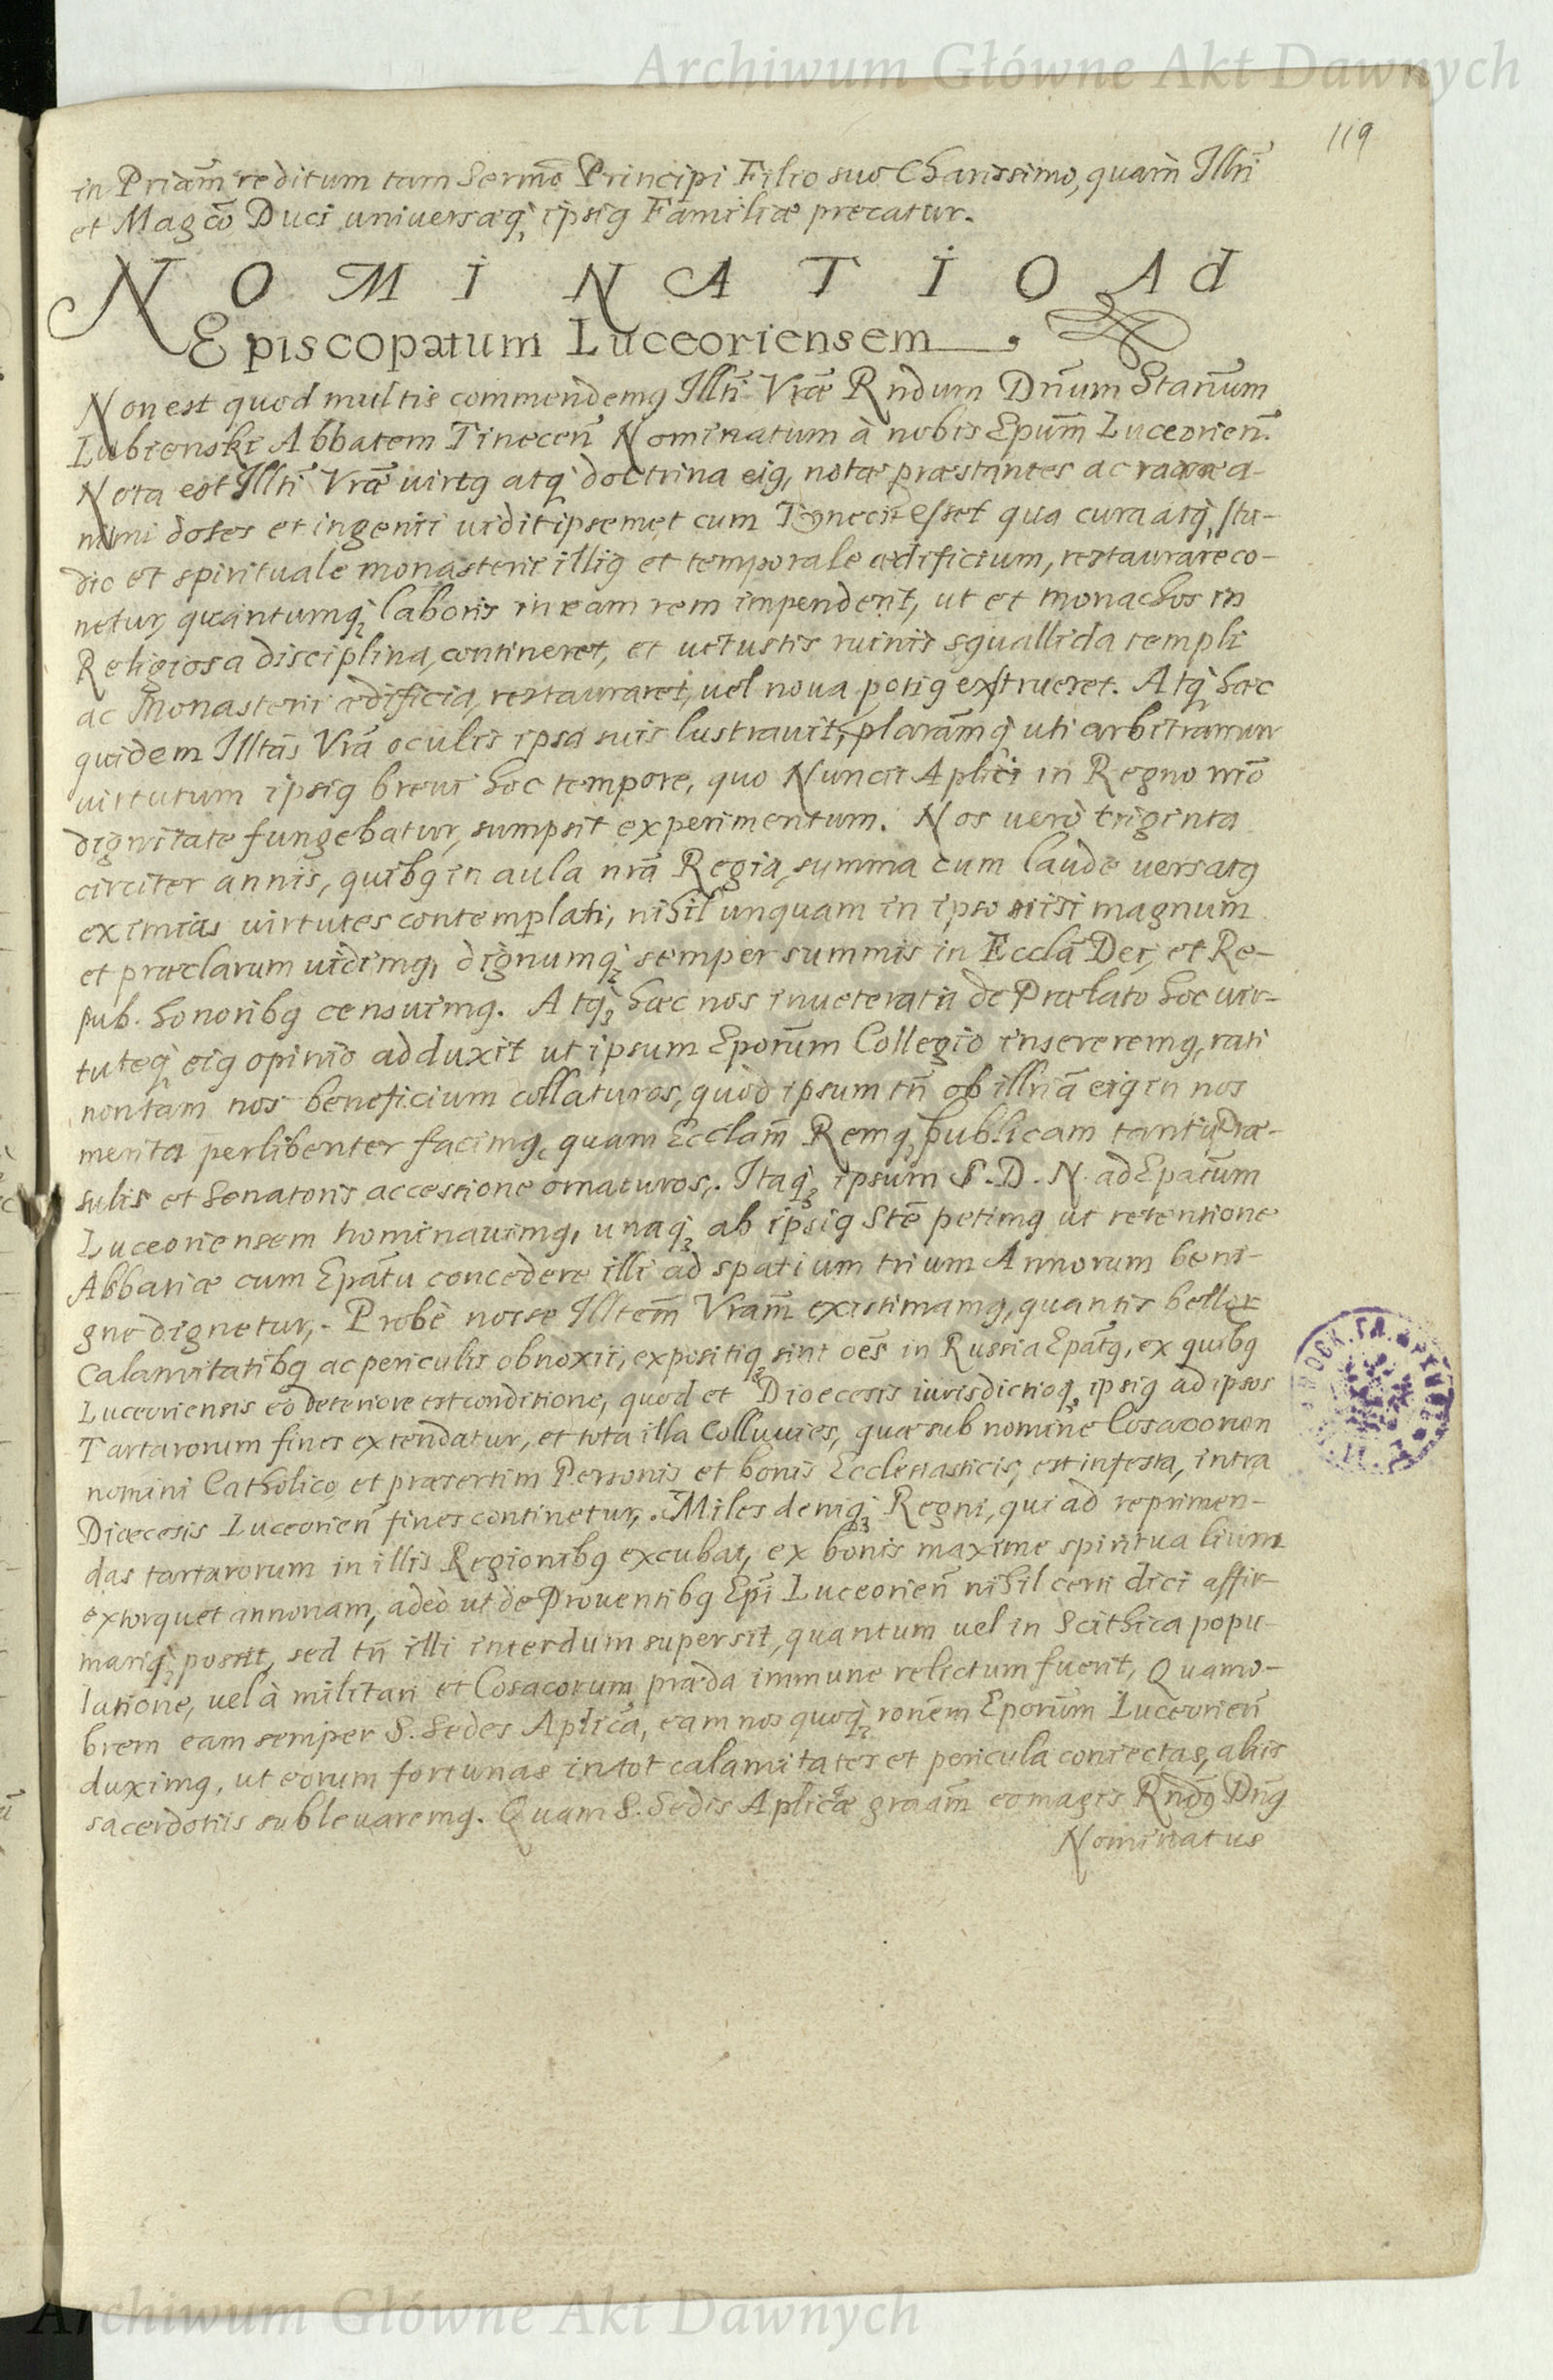 Archiwum Główne Akt Dawnych
119
in Priam̃ reditum tam Sermõ Principi Filio suo Charissimo, quam Illri
et Magcõ Duci universaeq; ipsiq Familiae precatur.
NOMINATIO Ad
Episcopatum Luceoriensem.
Non est quod multis commendemq Illti Vrae Rndum Dñum Stanũm
Lubienski Abbatem Tinecen̄ Nominatum à nobis Epum̄ Luceorien̄.
Nota est Illti Vrae uirtq atq; doctrina eiq, notae praestantes ac rarae a-
nimi dotes et ingenii uidit ipsemet cum Tynecii esset qua cura atq; stu-
dio et spirituale monasterii illiq et temporale aedificium, restaurare co-
netur, quantumq; laboris in eam rem impenderit, ut et monachos in
Religiosa disciplina, contineret, et uetustis ruinis squallida templi
ac Monasterii aedificia, restauraret, uel noua potiq exstrueret. Atq; haec
quidem Illtas Vra oculis ipsa suis lustrauit, plaram̃q; uti arbitramur
uirtutum ipsiq breui hoc tempore, quo Nuncii Aplici in Regno nrõ
dignitate fungebatur, sumpsit experimentum. Nos uerò triginta
circiter annis, quibq in aula nrã Regia, summa cum laude uersatq
eximias uirtutes contemplati, nihil unquam in ipso nisi magnum
et praeclarum uidimq, dignumq; semper summis in Ecclã Dei, et Re-
pub. honoribq censuimq. Atq; haec nos inueterata de Praelato hoc uir-
tuteq; eiq opinio adduxit ut ipsum Eporum̃ Collegio insereremq, rati
non tam nos beneficium collaturos, quòd ipsum tn̄ ob illriã eiq in nos
merita perlibenter facimq, quam Ecclam̃ Remq; publicam tanti Prae-
sulis et Senatoris accessione ornaturos. Itaq; ipsum S. D. N. ad Epatum̃
Luceoriensem nominauimq, unaq; ab ipsiq Stẽ petimq ut retentione
Abbatiae cum Epãtu concedere illi ad spatium trium Annorum beni-
gne dignetur. Probè nosse Illtem̃ Vram̃ existimamq, quantis bellor
calamitatibq ac periculis obnoxii, expositiq; sint oẽs in Russia Epãtq, ex quibq
Luceoriensis eò deteriore est conditione, quod et Dioecesis iurisdictioq; ipsiq ad ipsos
Tartarorum fines extendatur, et tota illa Colluuies, quae sub nomine Cosacorum
nomini Catholico, et praesertim Personis et bonis Ecclesiasticis, est infesta, intra
Dioecesis Luceorien̄ fines continetur. Miles deniq; Regni, qui ad reprimen-
das tartarorum in illis Regionibq excubat, ex bonis maxime spiritualium
extorquet annonam, adeò ut de Prouentibq Epĩ Luceorien̄ nihil certi dici affir-
mariq; possit, sed tn̄ illi interdum supersit, quantum uel in Scithica popu-
latione, uel à militari et Cosacorum praeda immune relictum fuerit, Quamo-
brem eam semper S. Sedes Aplicã, eam nos quoq; ronẽm Eporum̃ Luceorien̄
duximq, ut eorum fortunas in tot calamitates et pericula coniectas, aliis
sacerdotiis subleuaremq. Quam S. Sedis Aplicae graam̃ eo magis Rndq Dnq
Nominatus
Archiwum Główne Akt Dawnych